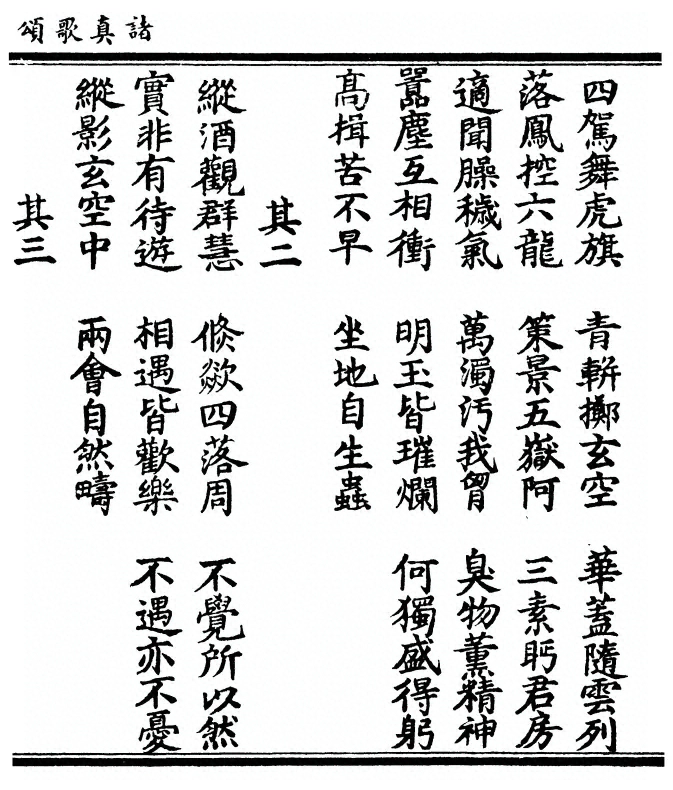 諸真歌頌
四駕舞虎旗　青軿擲玄空　華蓋隨雲列
落鳳控六龍　策景五嶽阿　三素眄君房
適聞臊穢氣　萬濁汚我胷　臭物薰精神
囂塵互相衝　明玉皆璀爛　何獨盛得躬
高揖苦不早　坐地自生蟲
其二
縱酒觀群慧　倐歘四落周　不覺所以然
實非有待遊　相遇皆歡樂　不遇亦不憂
縱影玄空中　兩會自然疇
其三